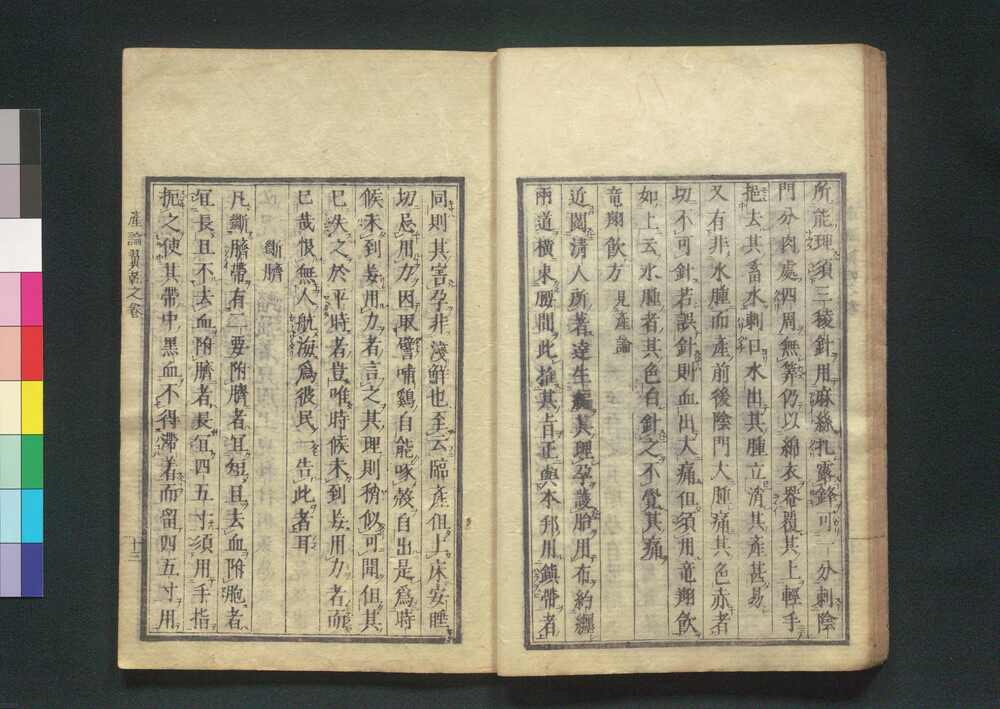 所能理須三稜針用麻絲扎露鋒可一分刺陰
門分肉處四周無筭仍以綿衣罨覆其上輕手
挹去其畜水刺口水出其腫立消其產甚易
又有非水腫而產前後陰門大腫痛其色赤者
切不可針若誤針則血出大痛但須用竜翔飲
如上云水腫者其色白針之不覺其痛
竜翔飲方 見產論
近閱清人所著達生編其理孕護胎用布約纏
兩道橫束腰間此推其旨正與本邦用鎮帶者
同則其害孕非淺鮮也至云臨產但上床安睡
切忌用力因取譬哺鷄自能啄殼自出是爲時
候未到妄用力者言之其理則稍似可聞但其
已失之於平時者豈唯時候未到妄用力者而
已哉恨無人航海爲彼民告此者耳
斷臍
凡斷臍帶有二要附臍者宜短且去血附胞者
宜長且不去血附臍者長宜四五寸須用手指
扼之使其帶中黑血不得滯着而留四五寸用
產論翼乾之卷
十三